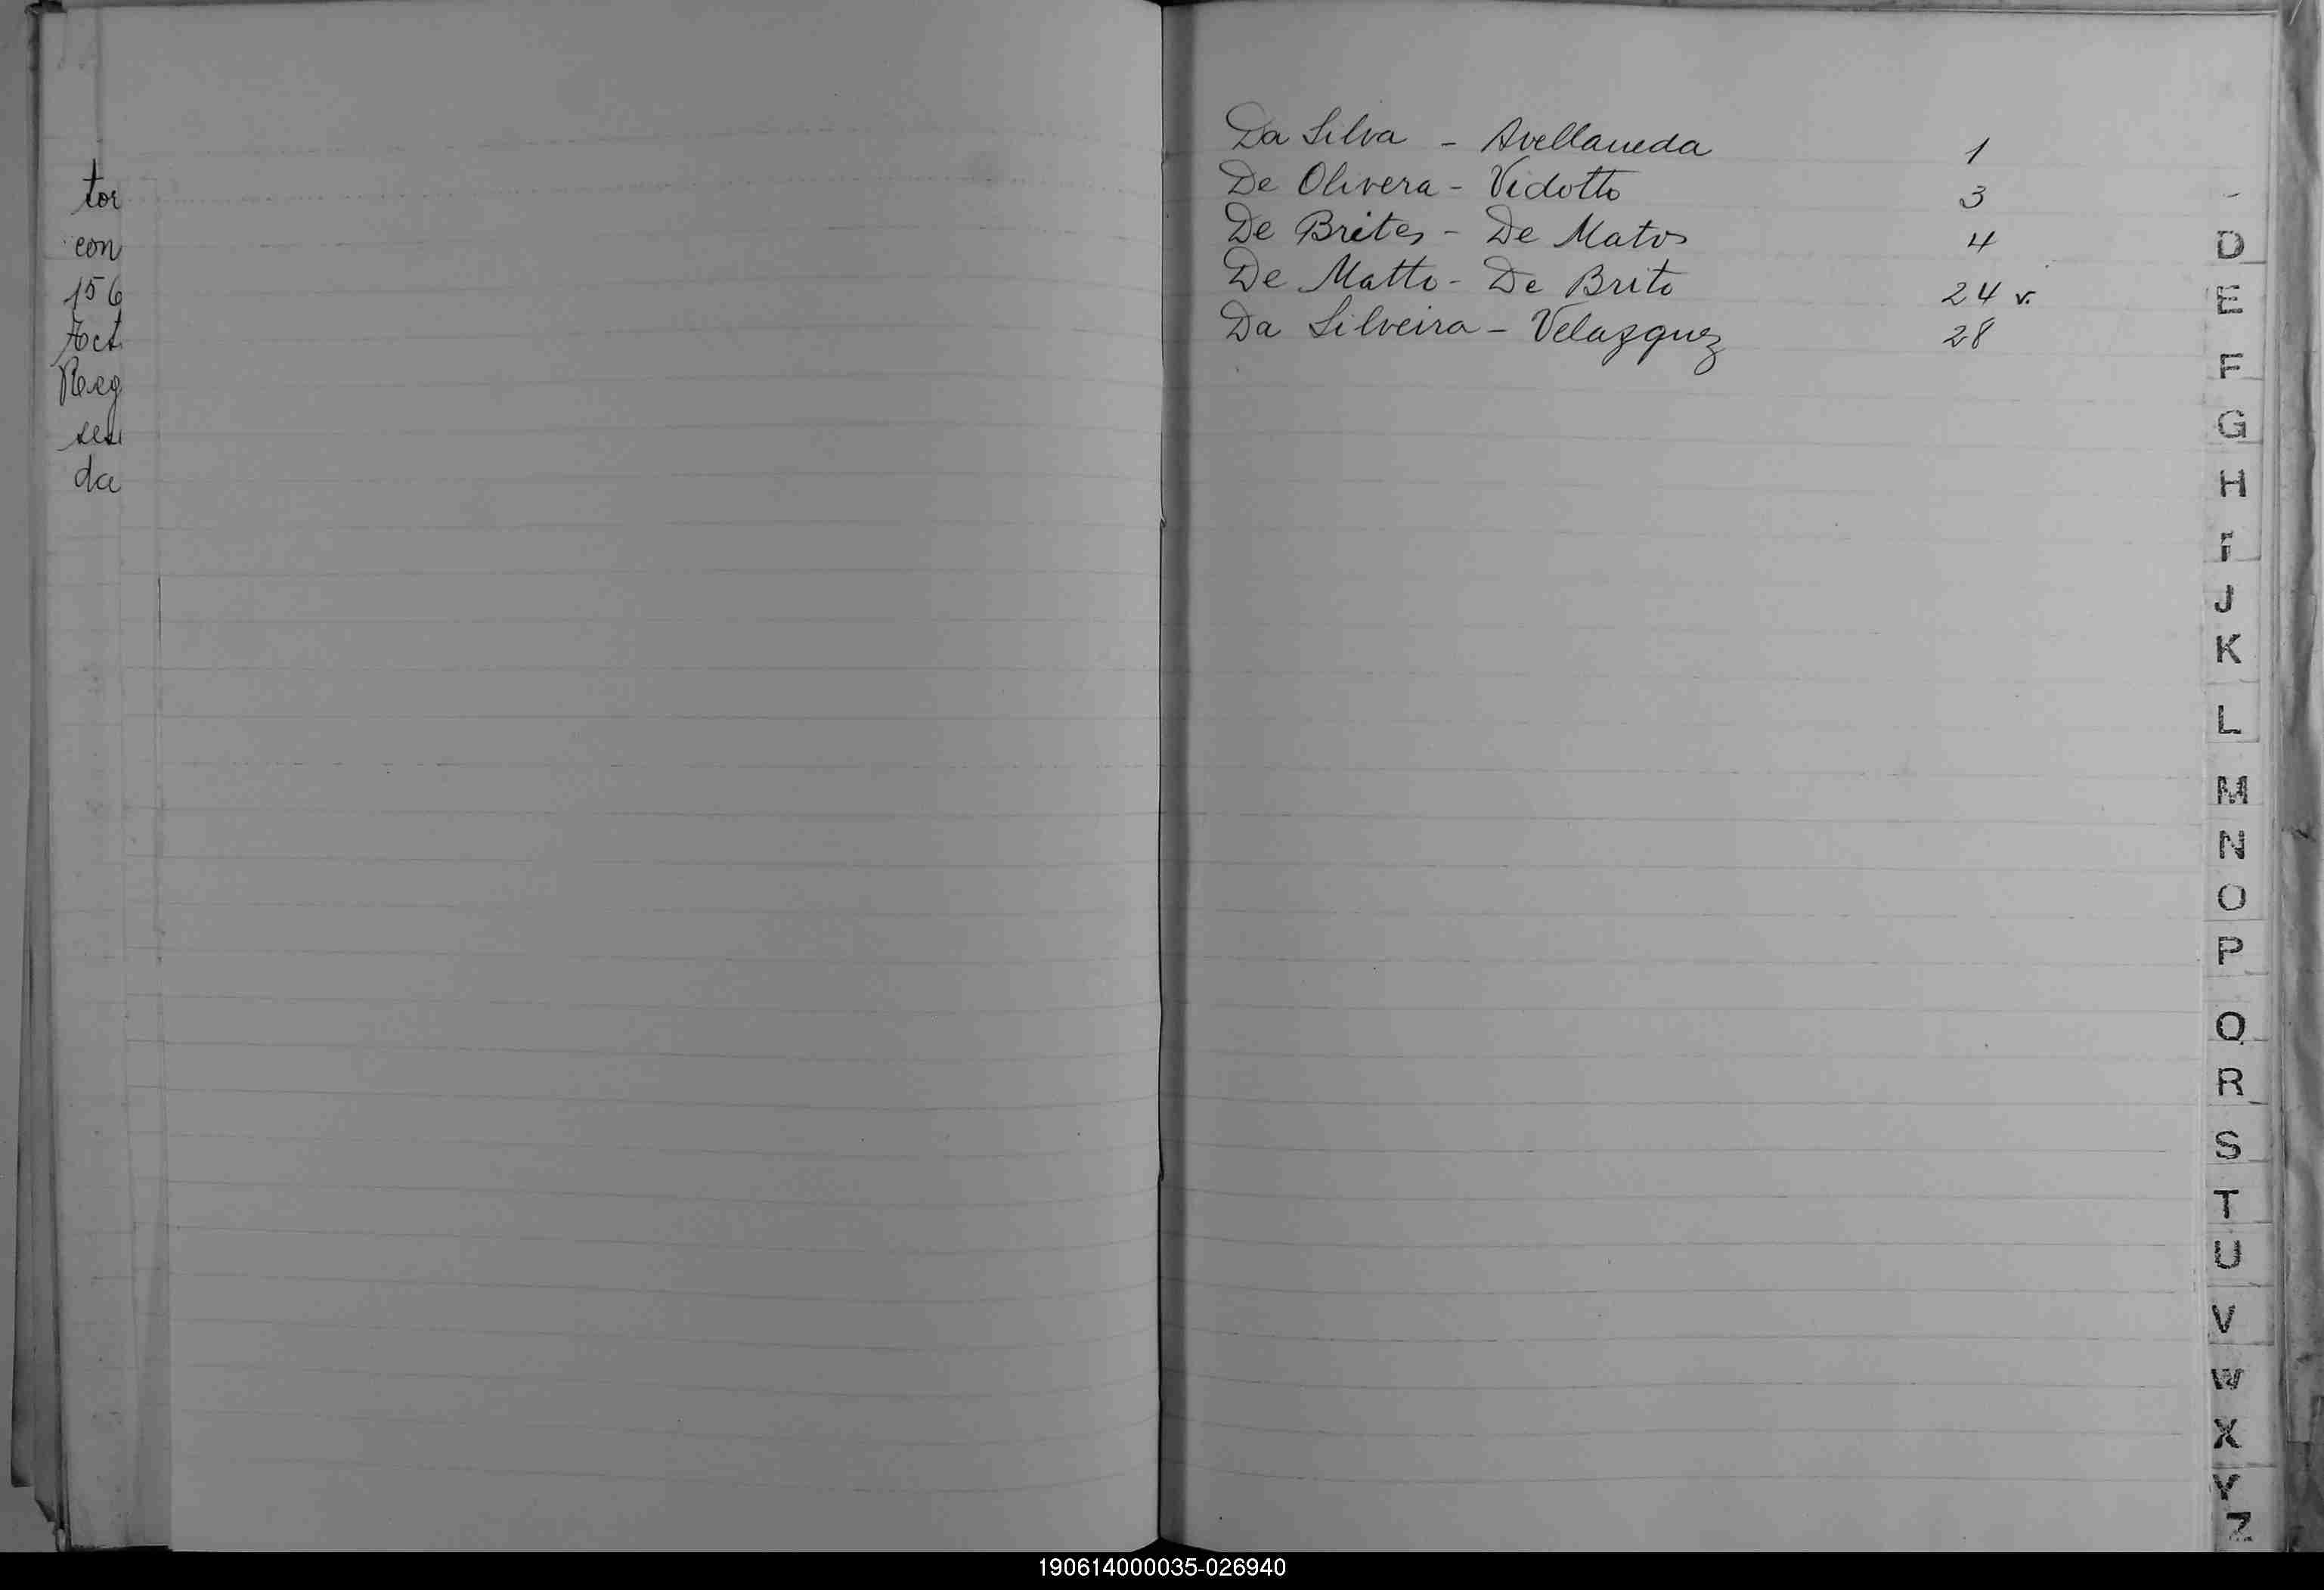 tor
con
156
Act.
Reg
seu
da
Da Silva - Avellaneda 1
De Olivera - Vidotto 3
De Brites - De Matos 4
De Matto - De Brito 24 v.
Da Silveira - Velazquez 28
D
E
F
G
H
I
J
K
L
M
N
O
P
Q
R
S
T
U
V
W
X
Y
Z
190614000035-026940